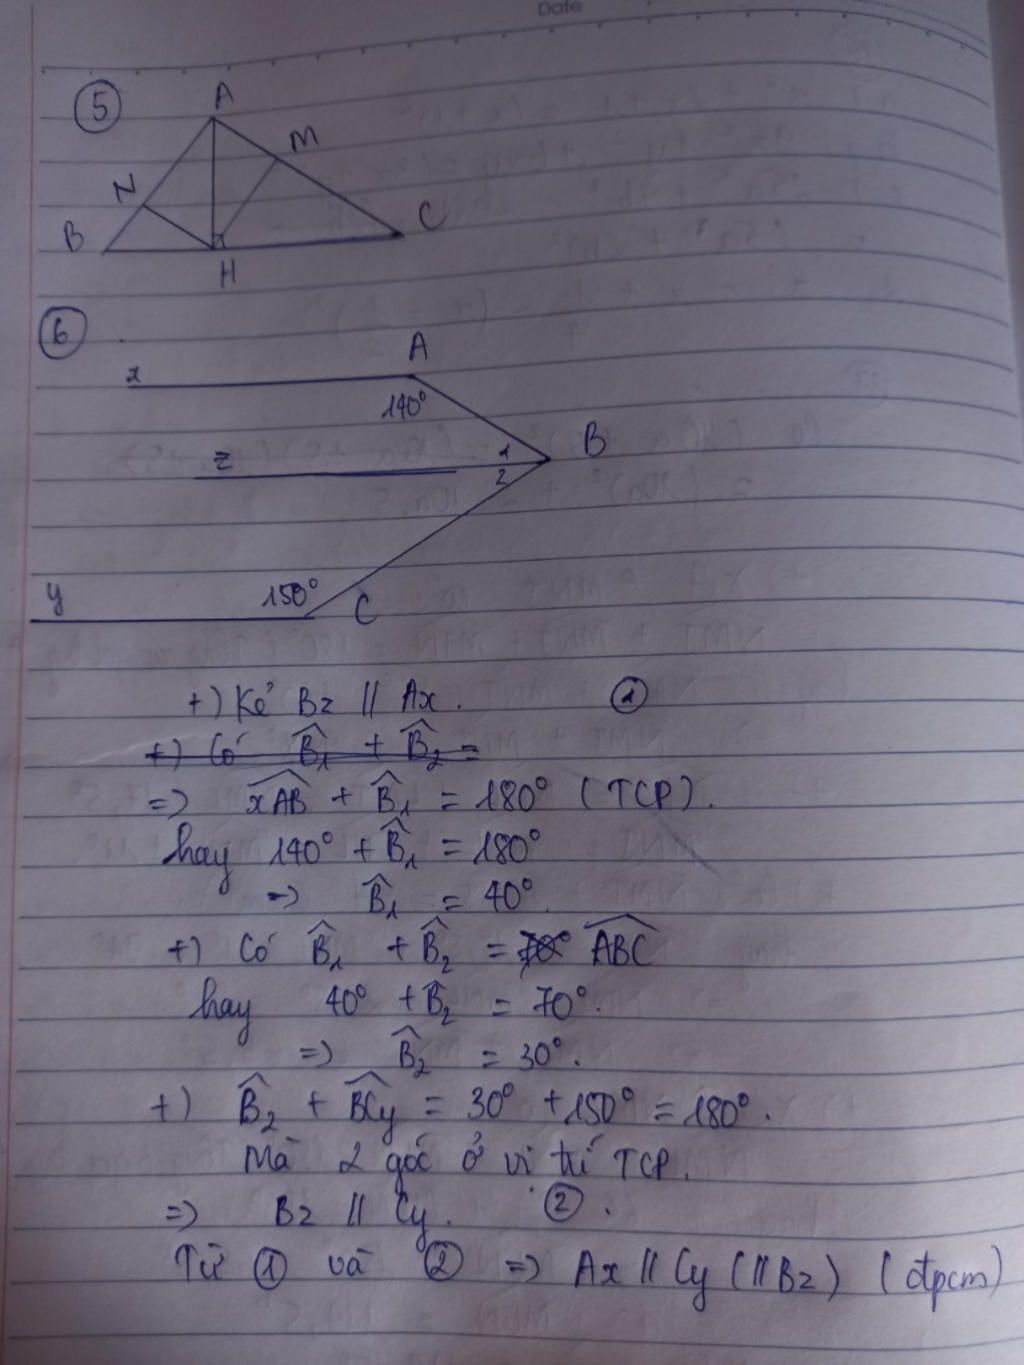 Date
5
A
M
N
B
C
H
6
A
x
140°
B
1
z
2
y
150°
C
+) Kẻ Bz // Ax. ①
+) Có B̂₁ + B̂₂ =
=> xAB + B̂₁ = 180° (TCP).
hay 140° + B̂₁ = 180°
=> B̂₁ = 40°.
+) Có B̂₁ + B̂₂ = 70° ABC
hay 40° + B̂₂ = 70°.
=> B̂₂ = 30°.
+) B̂₂ + BCy = 30° + 150° = 180°.
Mà 2 góc ở vị trí TCP.
=> Bz // Cy. ②.
Từ ① và ② => Ax // Cy (// Bz) (đpcm)